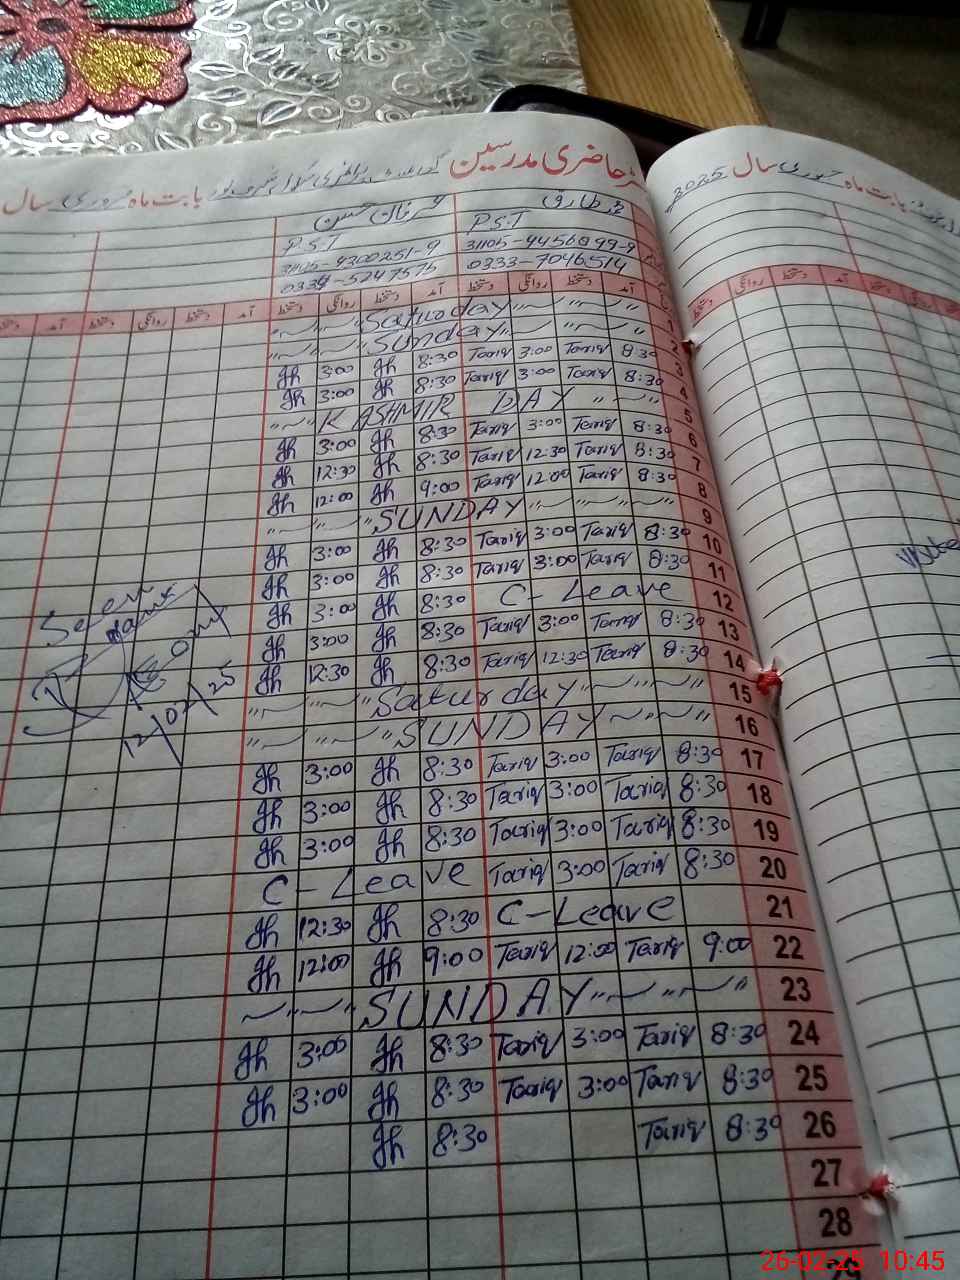 رجسٹر حاضری مدرسین بابت ماہ فروری سال
بابت ماہ جنوری سال 2025
عرفان حسن محمد طارق
P.S.T P.S.T
31105-9300251-9 31105-9456899-9
0334-5247575 0333-7046514
دستخط آمد دستخط روانگی دستخط آمد دستخط روانگی دستخط آمد دستخط روانگی دستخط آمد
〃 ~ 〃 ~ 〃 Saturday 〃 ~ 〃 ~ 〃 1
〃 ~ 〃 ~ 〃 Sunday 〃 ~ 〃 ~ 〃 2
Jh 3:00 Jh 8:30 Tariq 3:00 Tariq 8:30 3
Jh 3:00 Jh 8:30 Tariq 3:00 Tariq 8:30 4
〃 ~ 〃 KASHMIR DAY 〃 ~ 〃 ~ 〃 5
Jh 3:00 Jh 8:30 Tariq 3:00 Tariq 8:30 6
Jh 12:30 Jh 8:30 Tariq 12:30 Tariq 8:30 7
Jh 12:00 Jh 9:00 Tariq 12:00 Tariq 8:30 8
〃 ~ 〃 ~ 〃 SUNDAY 〃 ~ 〃 ~ 〃 9
Jh 3:00 Jh 8:30 Tariq 3:00 Tariq 8:30 10
Jh 3:00 Jh 8:30 Tariq 3:00 Tariq 8:30 11
Jh 3:00 Jh 8:30 C-Leave 12
Jh 3:00 Jh 8:30 Tariq 3:00 Tariq 8:30 13
Jh 12:30 Jh 8:30 Tariq 12:30 Tariq 8:30 14
〃 ~ 〃 ~ 〃 Saturday 〃 ~ 〃 ~ 〃 15
〃 ~ 〃 ~ 〃 SUNDAY 〃 ~ 〃 ~ 〃 16
Jh 3:00 Jh 8:30 Tariq 3:00 Tariq 8:30 17
Jh 3:00 Jh 8:30 Tariq 3:00 Tariq 8:30 18
Jh 3:00 Jh 8:30 Tariq 3:00 Tariq 8:30 19
C-Leave Tariq 3:00 Tariq 8:30 20
Jh 12:30 Jh 8:30 C-Leave 21
Jh 12:00 Jh 9:00 Tariq 12:00 Tariq 9:00 22
〃 ~ 〃 ~ 〃 SUNDAY 〃 ~ 〃 ~ 〃 23
Jh 3:00 Jh 8:30 Tariq 3:00 Tariq 8:30 24
Jh 3:00 Jh 8:30 Tariq 3:00 Tariq 8:30 25
Jh 8:30 Tariq 8:30 26
27
28
Seen
12/02/25
26-02-25 10:45